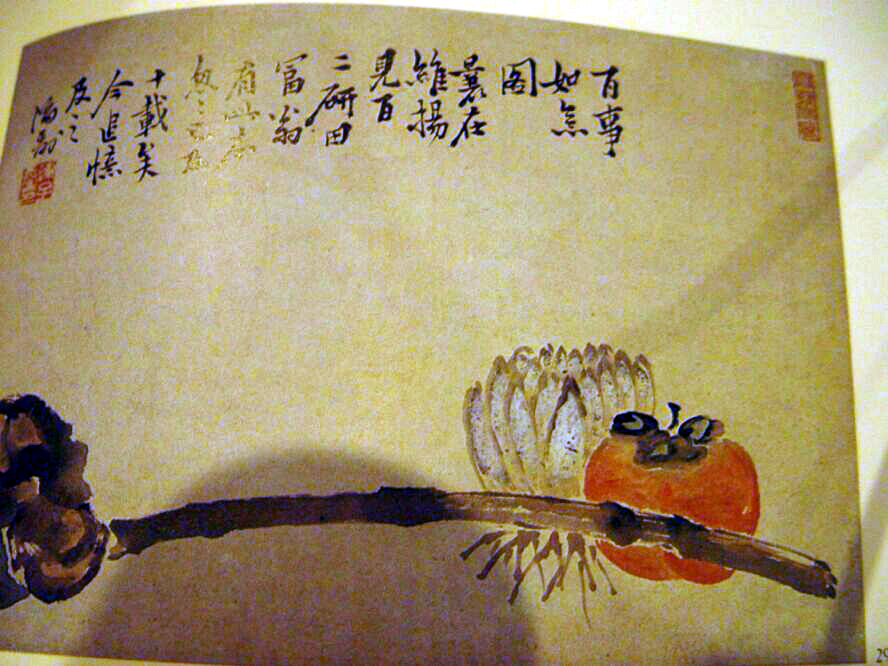 百事
如意
圖
曩在
維揚
見百
二研田
富翁
有此本
十載矣
今追憶
及之